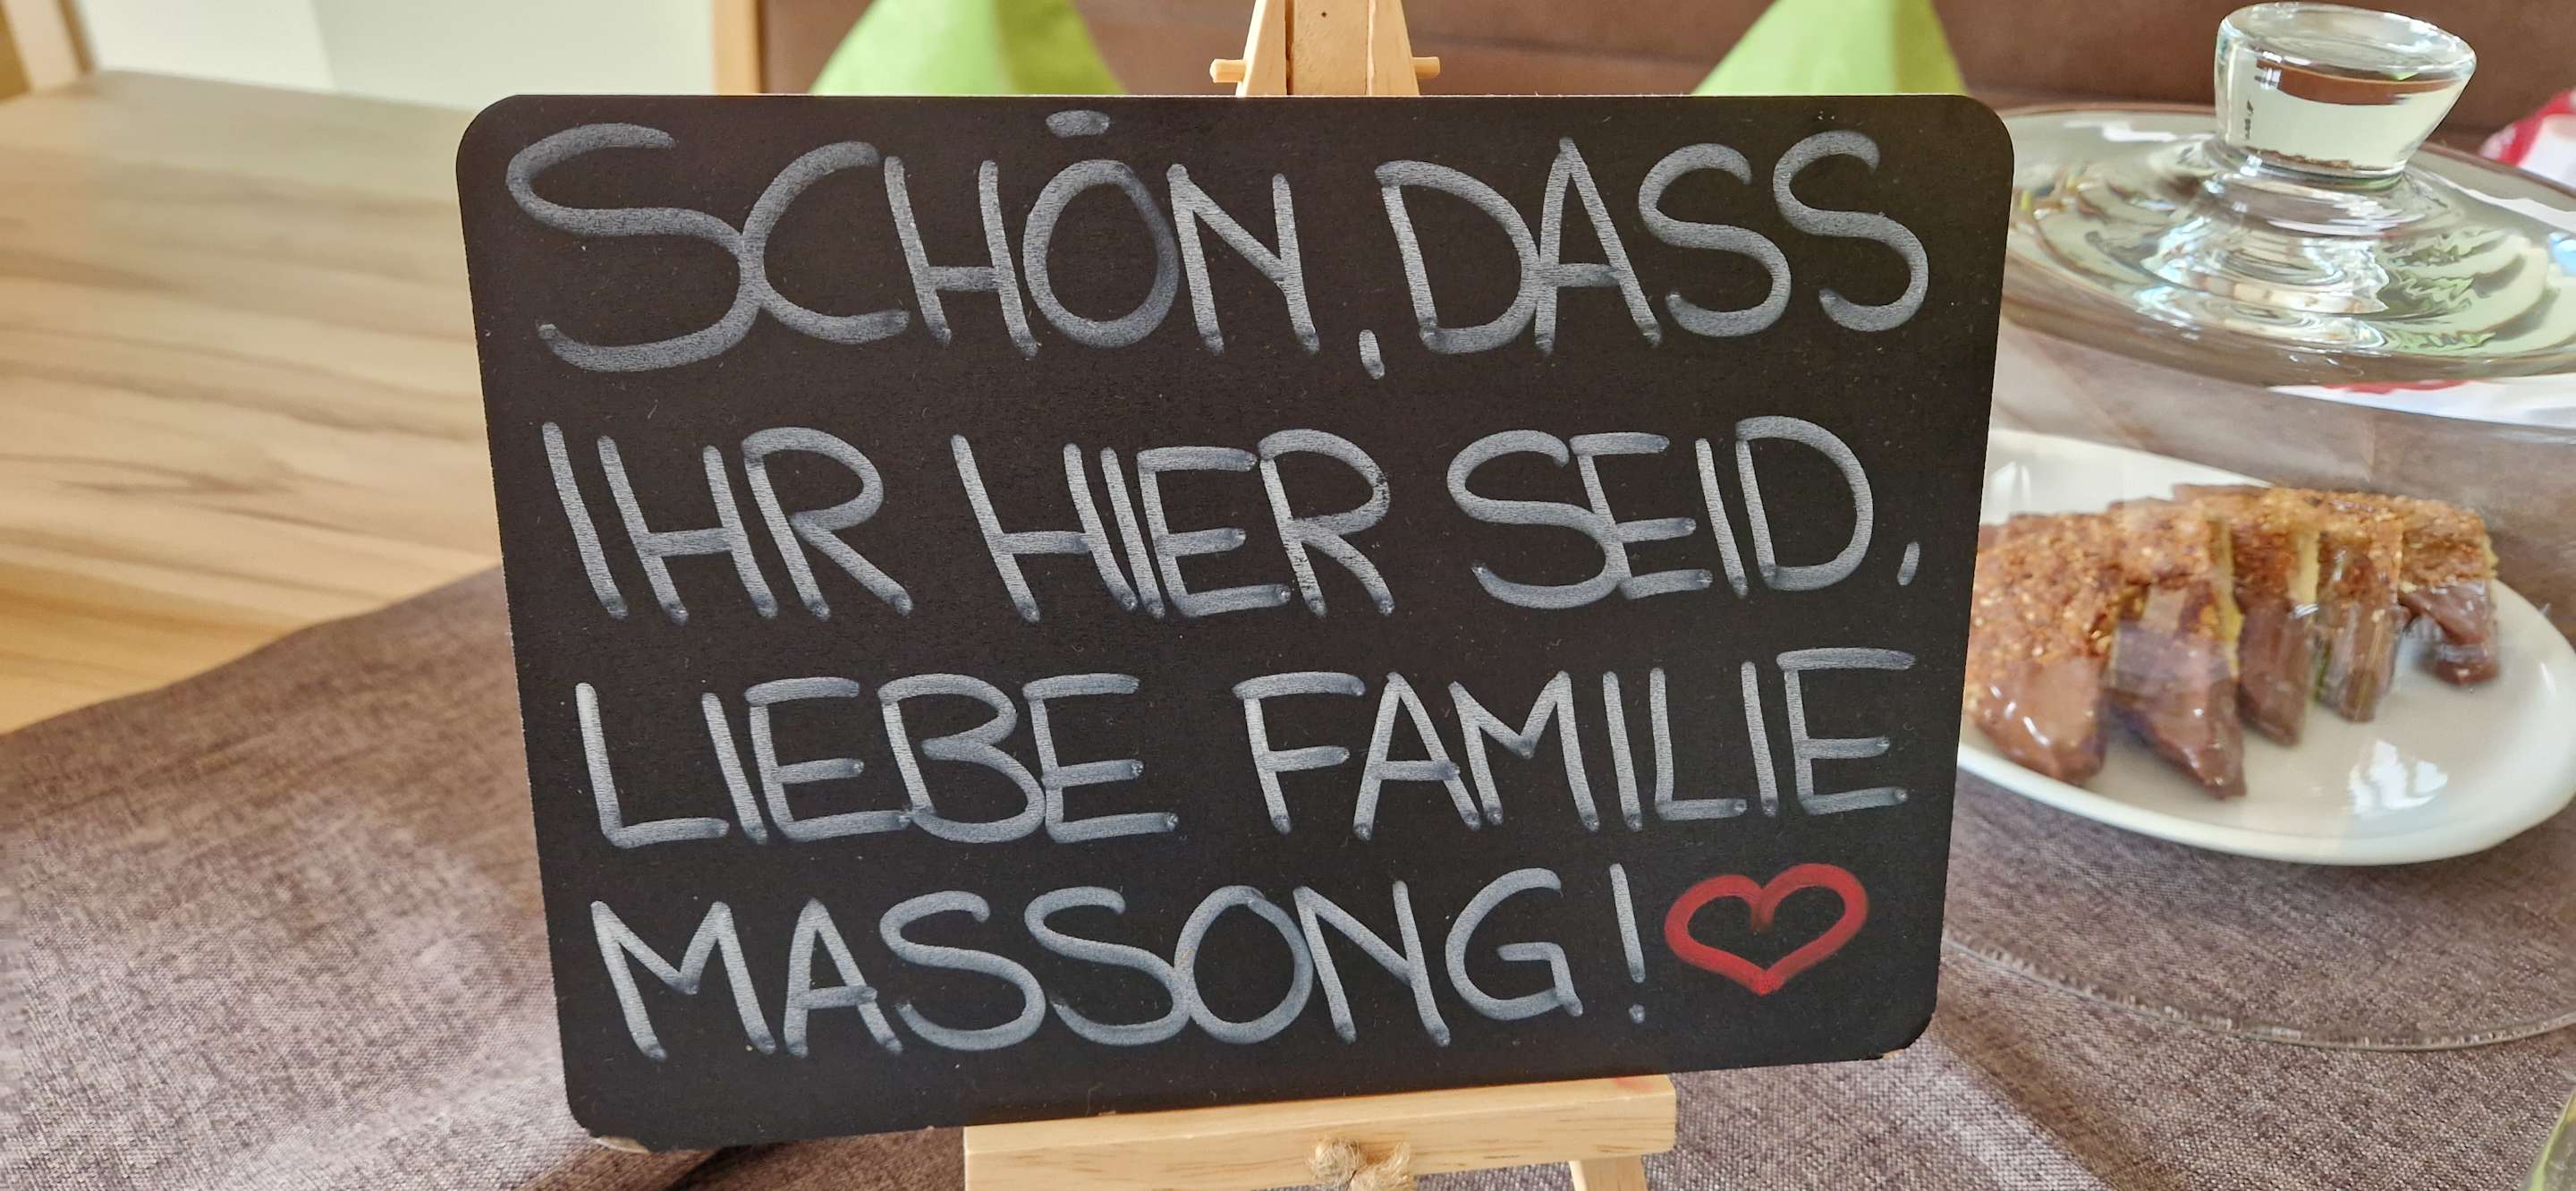 SCHÖN, DASS
IHR HIER SEID,
LIEBE FAMILIE
MASSONG!